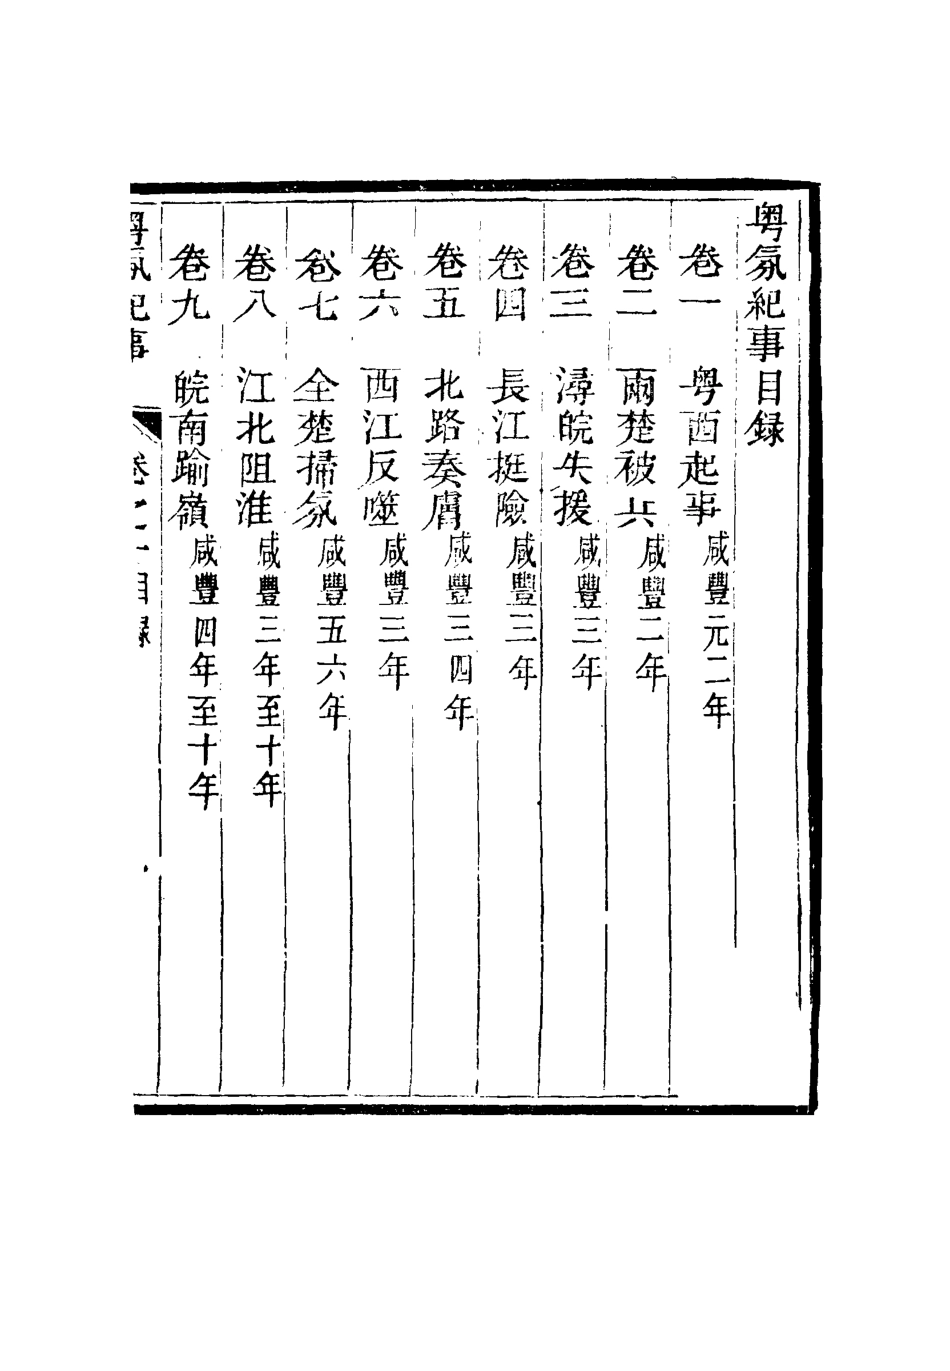 粤氛紀事目録
卷一 粤西起事 咸豐元二年
卷二 兩楚被兵 咸豐二年
卷三 潯皖失援 咸豐三年
卷四 長江挺險 咸豐三年
卷五 北路奏膚 咸豐三四年
卷六 西江反噬 咸豐三年
卷七 全楚掃氛 咸豐五六年
卷八 江北阻淮 咸豐三年至十年
卷九 皖南踰嶺 咸豐四年至十年
粤氛紀事 卷之 目録